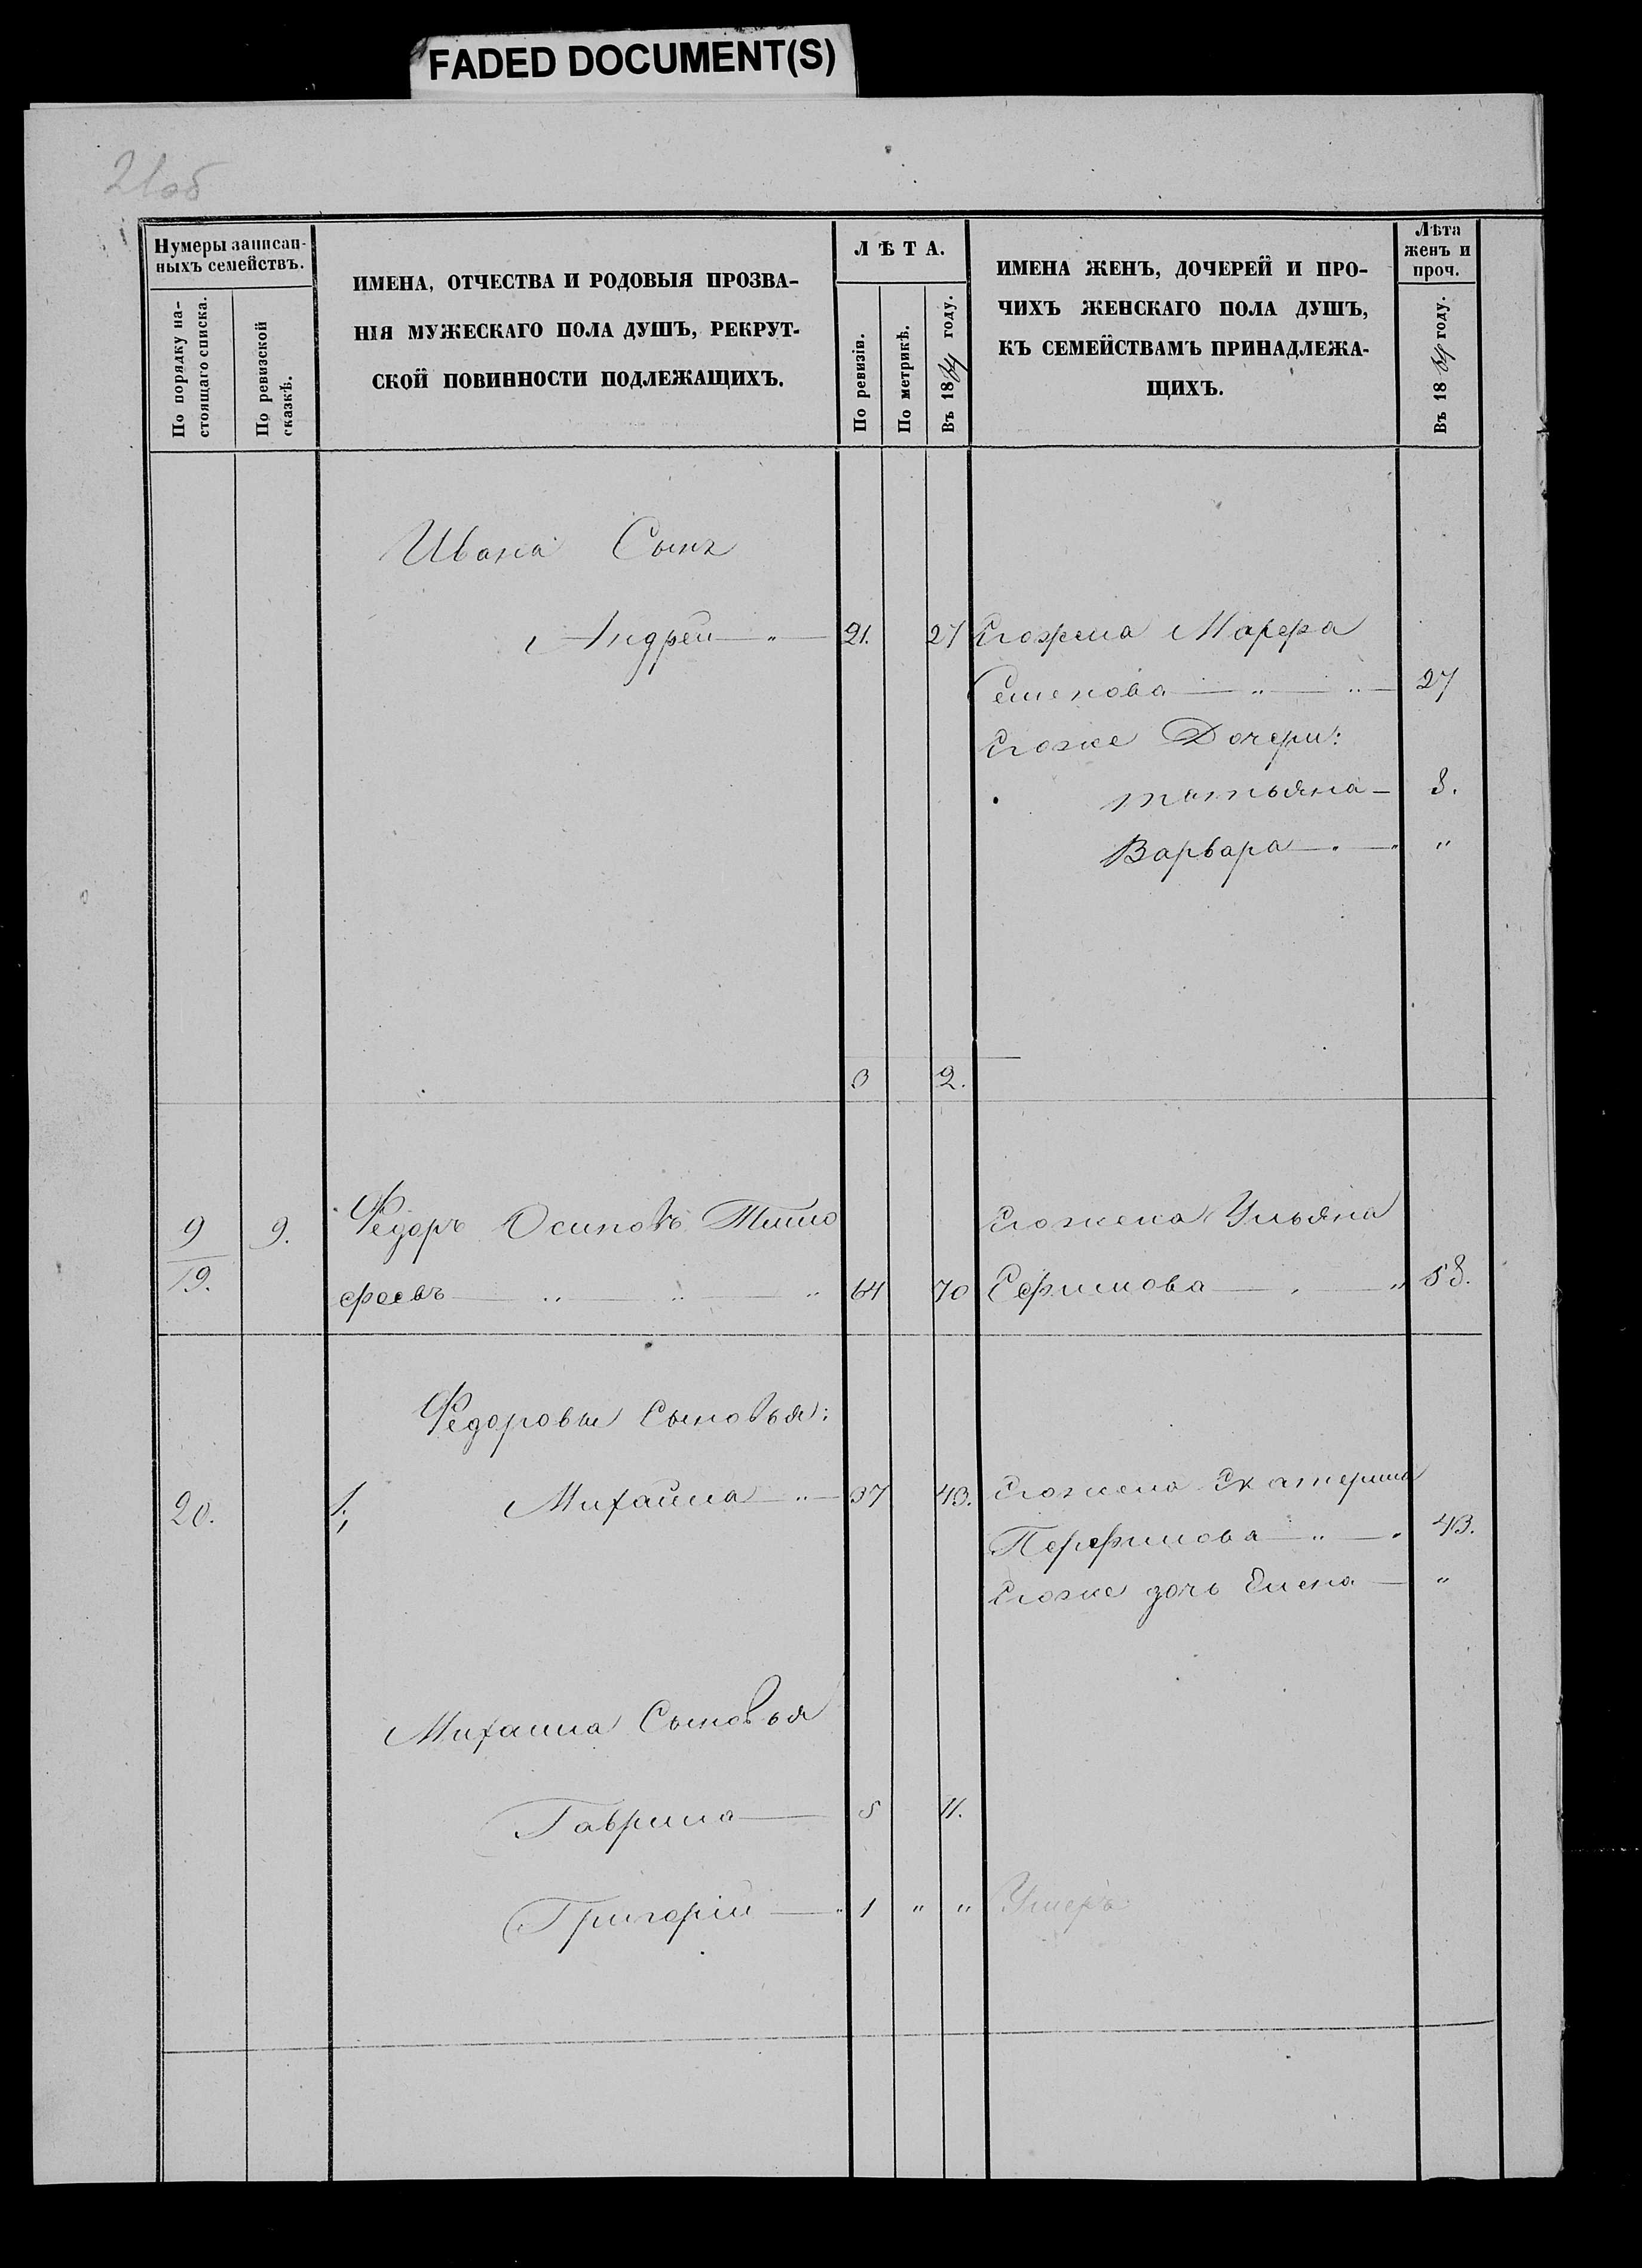 FADED DOCUMENT(S)
21об
Нумеры записан-
ныхъ семействъ.
По порядку на-
стоящаго списка.
По ревизской
сказкѣ.
ИМЕНА, ОТЧЕСТВА И РОДОВЫЯ ПРОЗВА-
НІЯ МУЖЕСКАГО ПОЛА ДУШЪ, РЕКРУТ-
СКОЙ ПОВИННОСТИ ПОДЛЕЖАЩИХЪ.
ЛѢТА.
По ревизіи.
По метрикѣ.
Въ 1864 году.
ИМЕНА ЖЕНЪ, ДОЧЕРЕЙ И ПРО-
ЧИХЪ ЖЕНСКАГО ПОЛА ДУШЪ,
КЪ СЕМЕЙСТВАМЪ ПРИНАДЛЕЖА-
ЩИХЪ.
Лѣта
женъ и
проч.
Въ 1864 году.
Ивана Сынъ
Андрей — " — 21. 27 Егожена Марфа
Семенова — " — " — 27
Егоже Дочери:
татьяна — 8.
Варвара — " — "
3 2.
9 9. Федоръ Осиповъ Тимо Егожена Ульяна
19. фѣевъ — " — " — " 64 70 Ефимова — " — " 58.
Федоровы Сыновья:
20. 1; Михайла — " — 37 43. Егожена Екатерина
Перфилова — " — " 43.
Егоже дочь Елена — "
Михайла Сыновья
Гаврила — 5 11.
Григорій — " 1 " " Умеръ